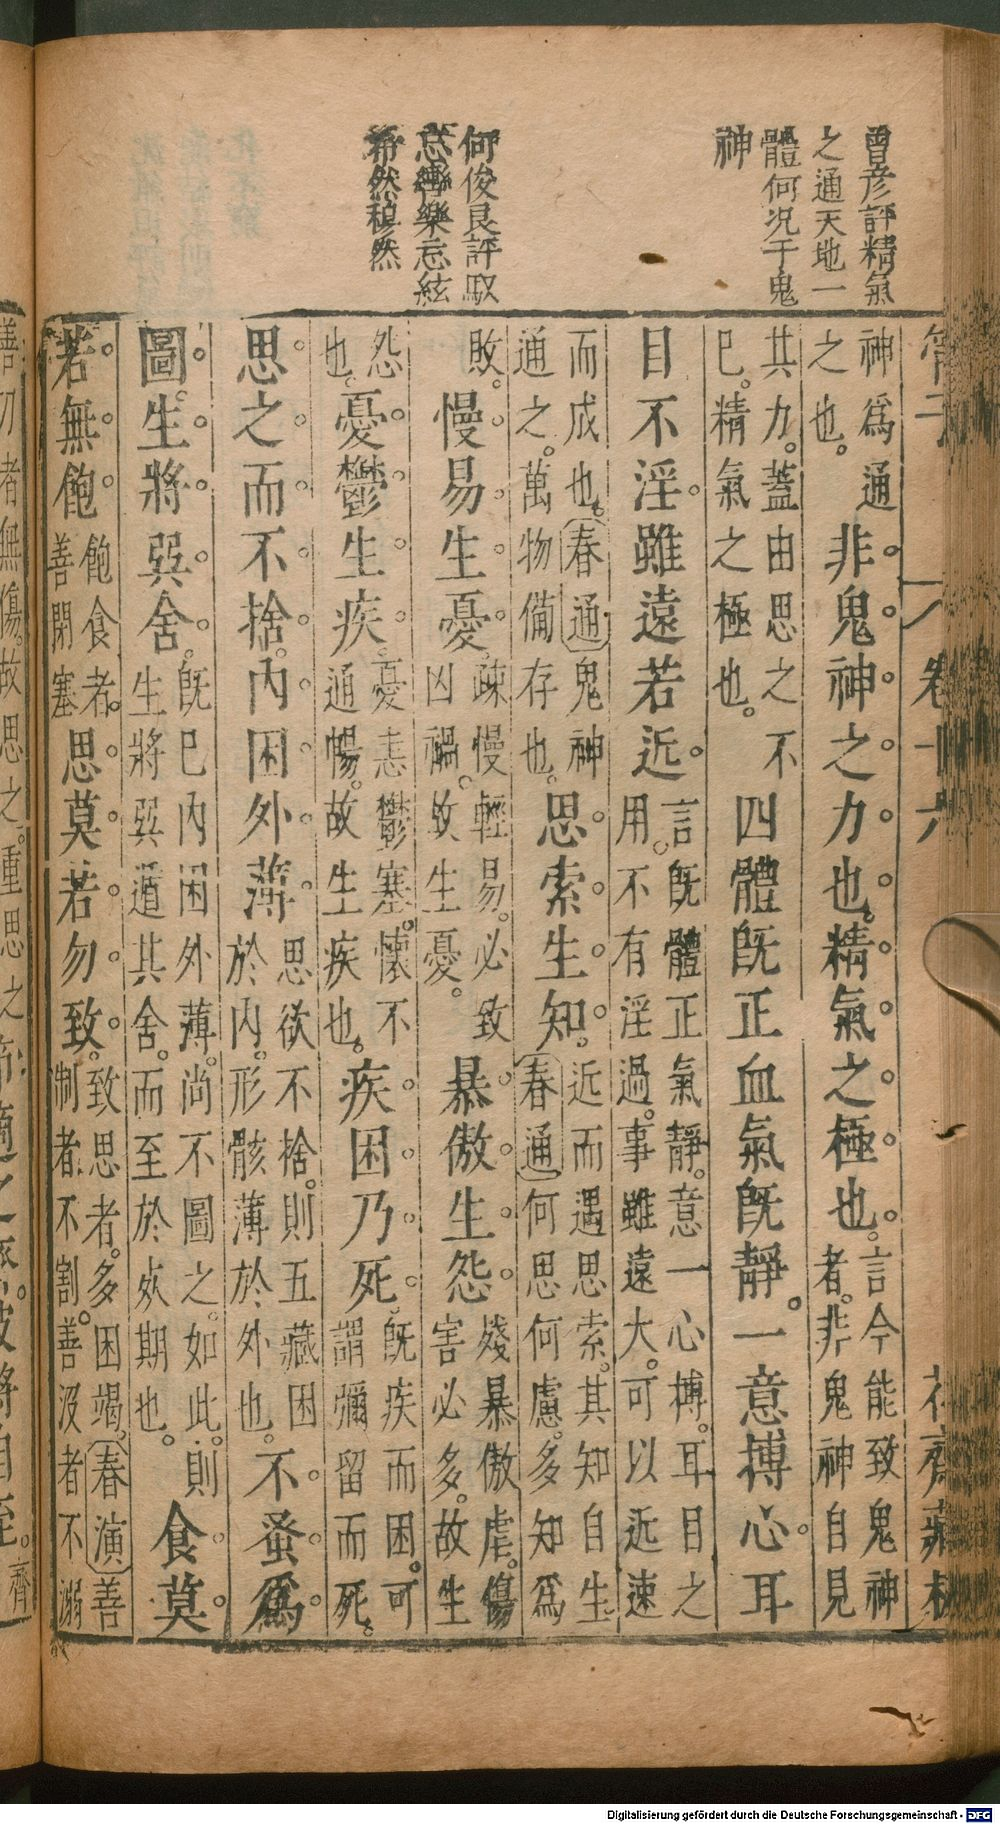 曾彦評精氣
之通天地一
體何况于鬼
神
何俊良評馭
忘轡樂忘絃
希然穆然
管子 卷十六 花齋藏板
神爲通
之也。非鬼神之力也。精氣之極也。言今能致鬼神
者。非鬼神自見
其力。蓋由思之不
已。精氣之極也。四體既正血氣既靜。一意摶心耳
目不淫。雖遠若近。言既體正氣靜。意一心摶。耳目之
用。不有淫過。事雖遠大。可以近速
而成也。春通鬼神
通之。萬物備存也。思索生知。近而遇思索。其知自生
春通何思何慮。多知爲
敗。慢易生憂。疎慢輕易。必致
凶禍。故生憂。暴傲生怨。殘暴傲虐。傷
害必多。故生
怨
也。憂鬱生疾。憂恚鬱塞。懷不
通暢。故生疾也。疾困乃死。既疾而困。可
謂彌留而死。
思之而不捨。內困外薄。思欲不捨。則五藏困
於內。形骸薄於外也。不蚤爲
圖。生將巽舍。既已內困外薄。尚不圖之。如此。則
生將巽遁其舍。而至於死期也。食莫
若無飽。飽食者。
善閉塞思莫若勿致。致思者。多困竭。春演善
制者不割。善汲者不溺
善刀者無傷。故思之。重思之
齊
Digitalisierung gefördert durch die Deutsche Forschungsgemeinschaft - DFG